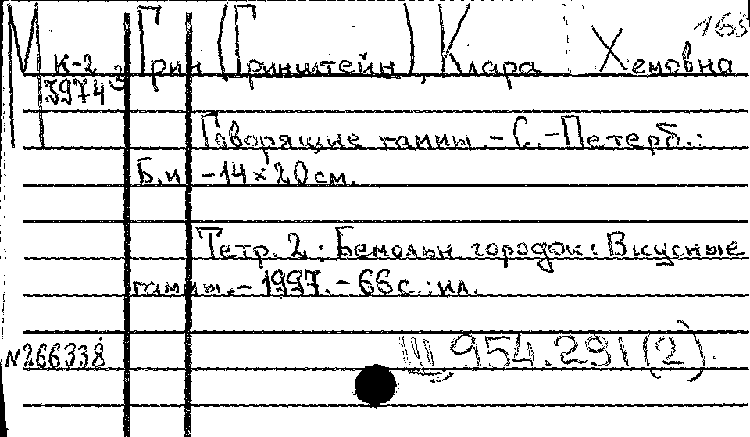 163
М Грин (Гринштейн), Клара Хемовна
К-2
3974
Говорящие гаммы. - С.-Петерб.:
Б.и - 14×20 см.
Тетр. 2: Бемольн. городок: Вкусные
гаммы. - 1997. - 66 с.: ил.
N266338 III 954.291(2)